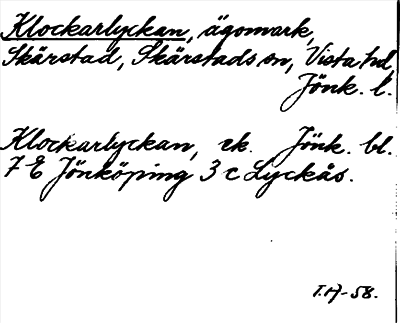 Klockarlyckan, ägomark,
Skärstad, Skärstads sn, Vista hd,
Jönk. l.
Klockarlyckan, ek. Jönk. bl.
7 E Jönköping 3 c Lyckås.
T.H-58.